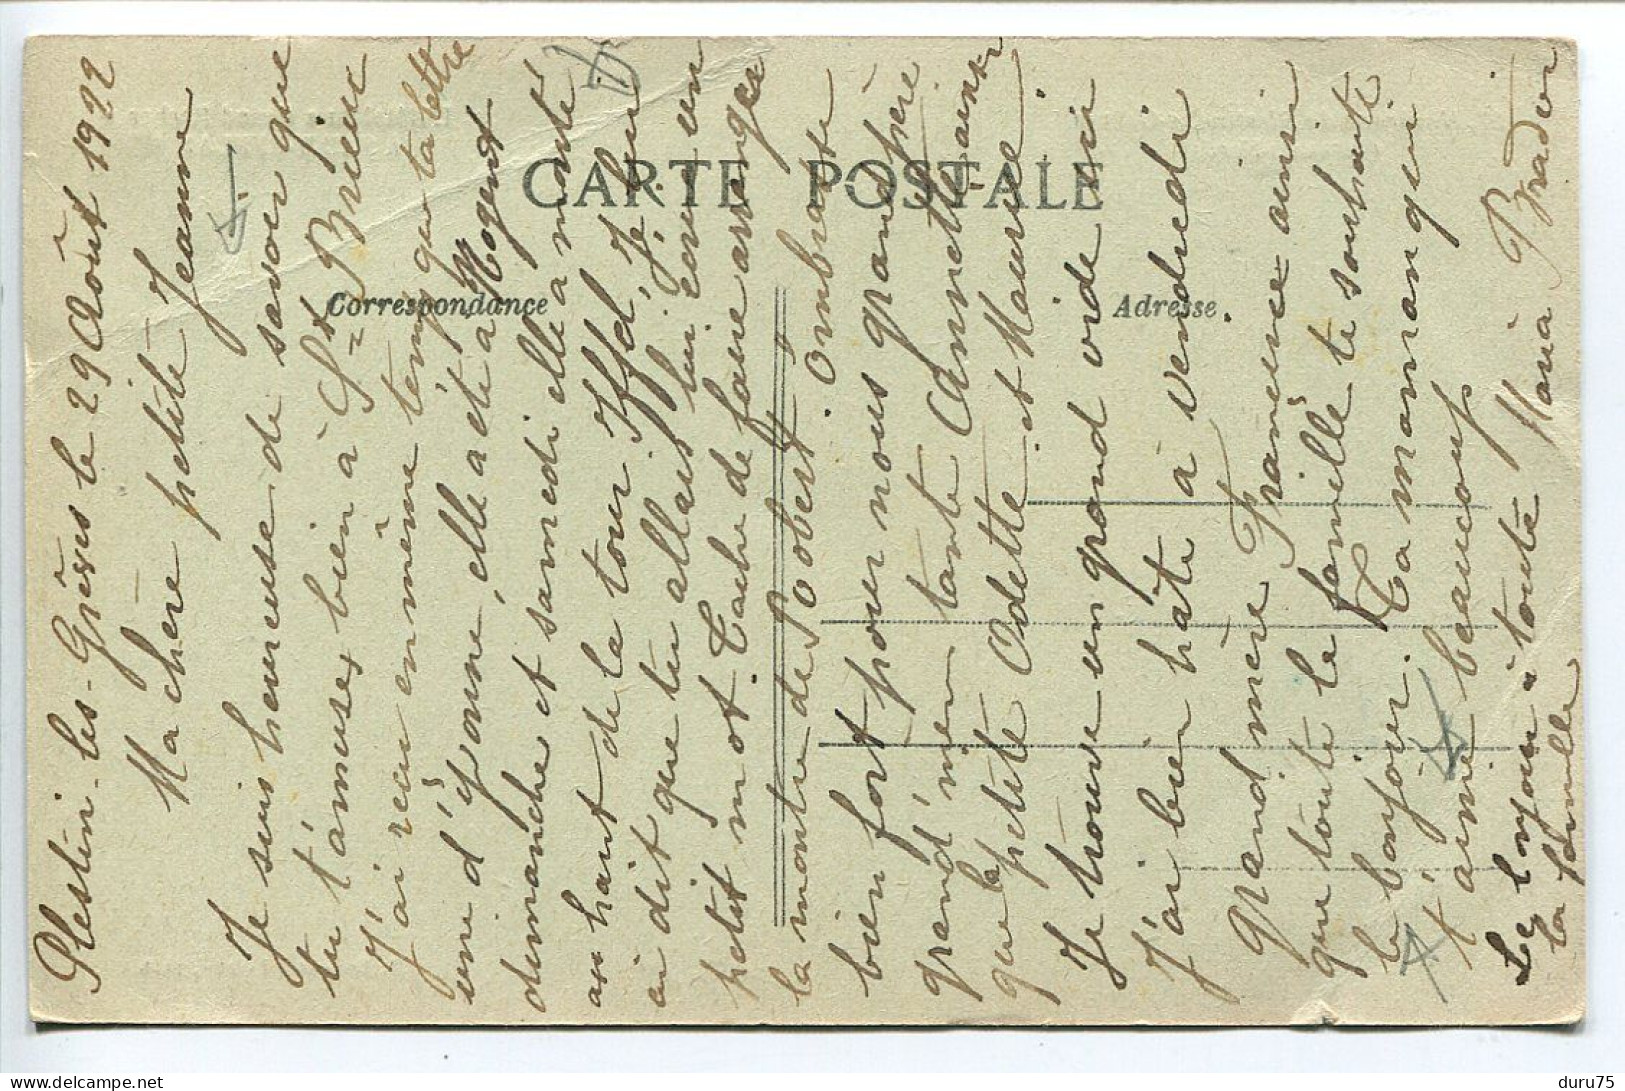 Plestin-les-Grèves le 29 Août 1922
Ma chère petite Jeanne
Je suis heureuse de savoir que
tu t'amuses bien à St Brieuc
J'ai reçu en même temp que ta lettre
une d'Yvonne, elle a été à Nogent
dimanche et samedi elle a monté
au haut de la tour Iffel, Je lui
ai dit que tu allais lui écrire un
petit mot. Tache de faire arranger
la montre de Robert. Embrasse
bien fort pour nous grand père
grand'mère tante Annette ainsi
que la petite Odette et Maurice
Je trouve un grand vide ici
J'ai bien hate à vendredi
Grand mère Francine ainsi
que toute la famille te souhaite
le bonjour. Ta maman qui
t'aime beaucoup
Maria Pradou
Le bonjour à toute
la famille
CARTE POSTALE
Correspondance
Adresse.
duru75